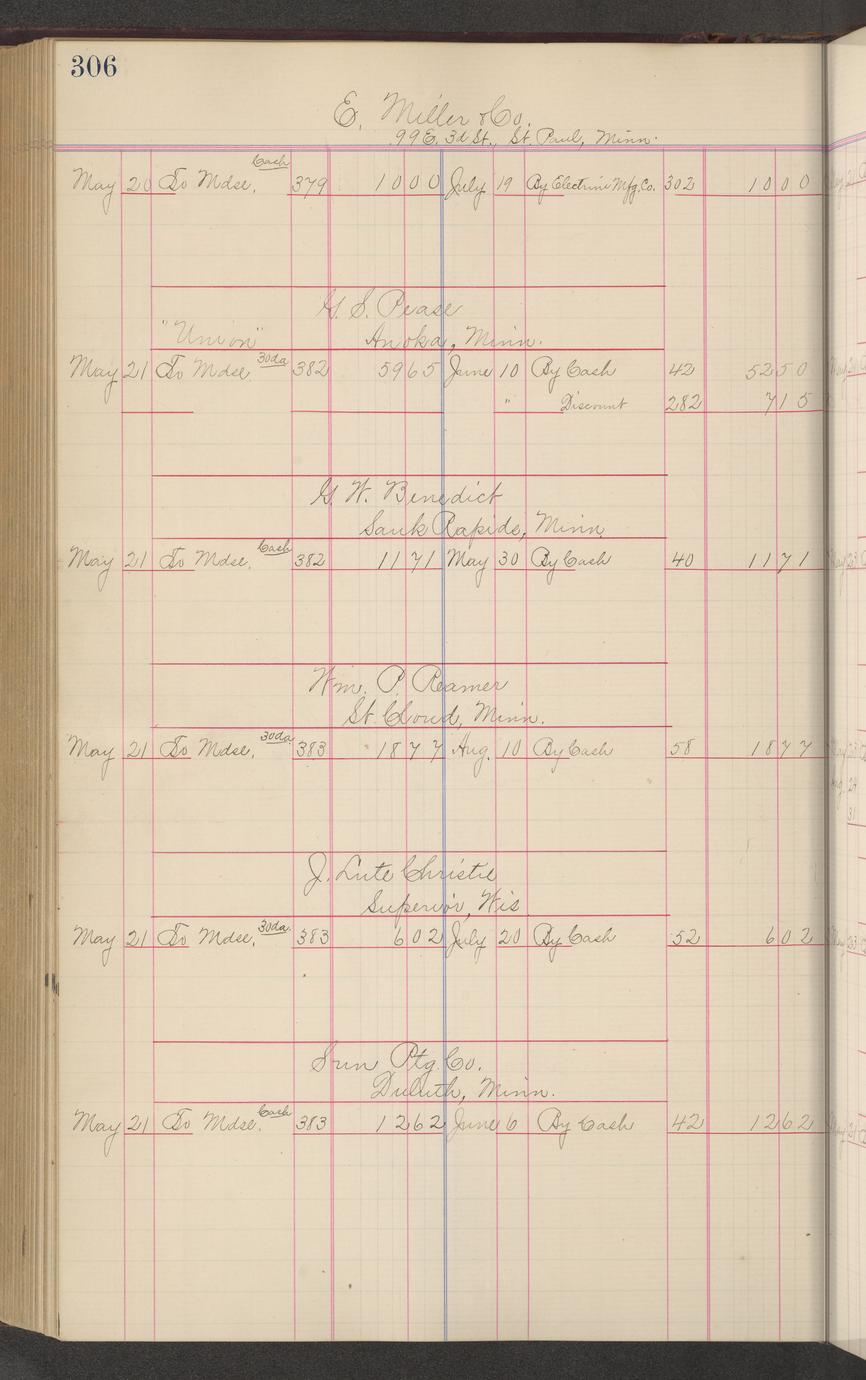 306
E. Miller & Co.
99 E. 3d St., St. Paul, Minn.
May 20 To Mdse. Cash 379 10 00 July 19 By Electrine Mfg. Co. 302 10 00
G. S. Pease
"Union" Anoka, Minn.
May 21 To Mdse 30da 382 59 65 June 10 By Cash 42 52 50
" Discount 282 7 15
G. W. Benedict
Sauk Rapids, Minn
May 21 To Mdse. Cash 382 11 71 May 30 By Cash 40 11 71
Wm. P. Reamer
St. Cloud, Minn.
May 21 To Mdse. 30da. 383 18 77 Aug. 10 By Cash 58 18 77
J. Lute Christie
Superior, Wis
May 21 To Mdse. 30da. 383 6 02 July 20 By Cash 52 6 02
Sun Ptg. Co.
Duluth, Minn.
May 21 To Mdse. Cash 383 12 62 June 6 By Cash 42 12 62